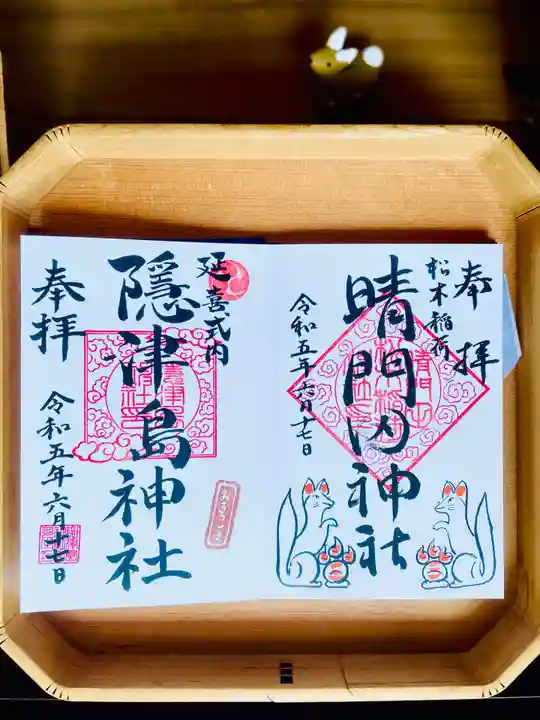 奉拝
松木稲荷
晴門囚神社
令和五年六月十七日
延喜式内
隠津島神社
奉拝
令和五年六月十七日